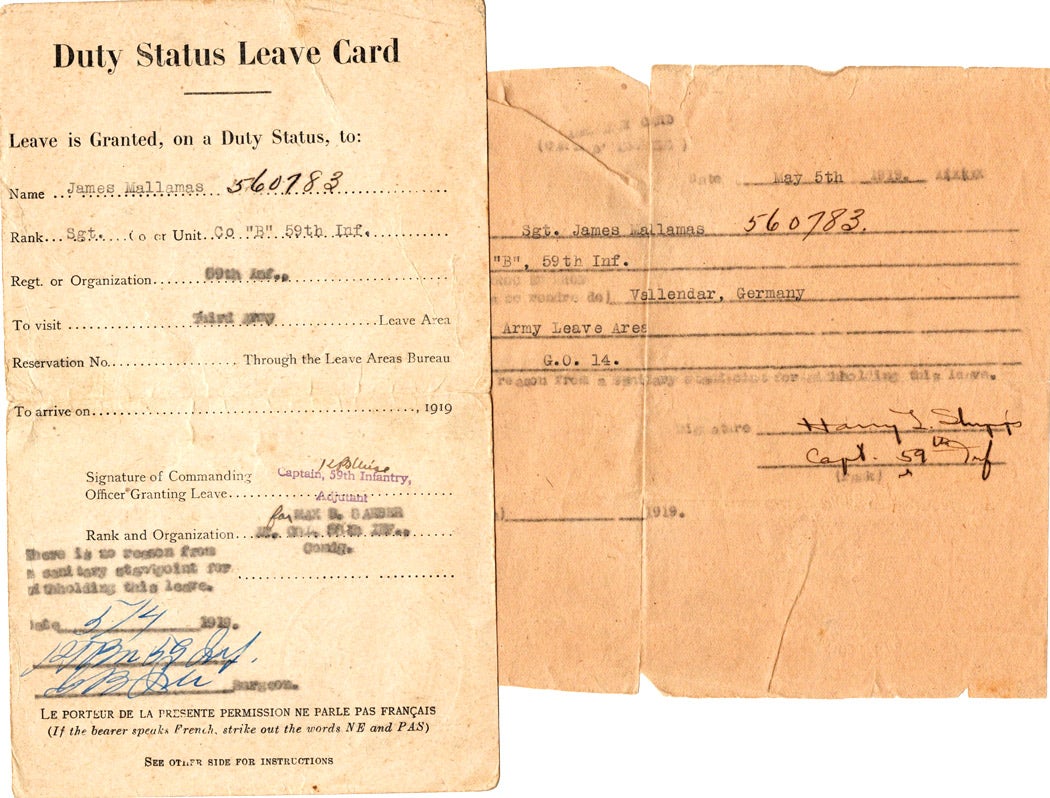 Duty Status Leave Card
Leave is Granted, on a Duty Status, to:
Name ... James Mallamas 560783
Rank... Sgt. Co or Unit. Co "B" 59th Inf.
Regt. or Organization 59th Inf.
To visit Third Army Leave Area
Reservation No. Through the Leave Areas Bureau
To arrive on , 1919
Signature of Commanding
Officer Granting Leave
Captain, 59th Infantry,
Adjutant
for MAX B.
Rank and Organization Lt. Col. 59th Inf.
Comdg.
There is no reason from
a sanitary standpoint for
withholding this leave.
Date 5/4 1919.
Bn 59 Inf.
Surgeon.
LE PORTEUR DE LA PRESENTE PERMISSION NE PARLE PAS FRANÇAIS
(If the bearer speaks French, strike out the words NE and PAS)
SEE OTHER SIDE FOR INSTRUCTIONS
CARD
Date May 5th 1919.
Sgt. James Mallamas 560783.
"B", 59th Inf.
se rendre de) Vallendar, Germany
Army Leave Area
G.O. 14.
reason from a sanitary standpoint for withholding this leave.
Signature Harry L.
Capt. 59th Inf
(Rank)
1919.